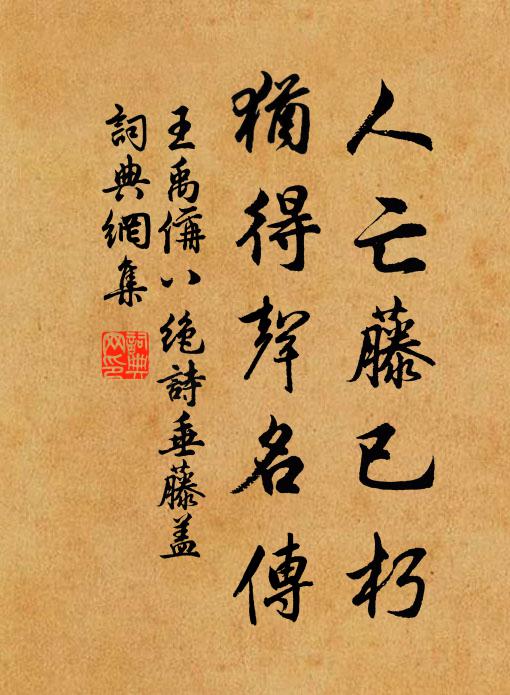 人亡藤已朽
猶得聲名傳
王禹偁八絶詩垂藤盖
詞典網集
詞典
网印